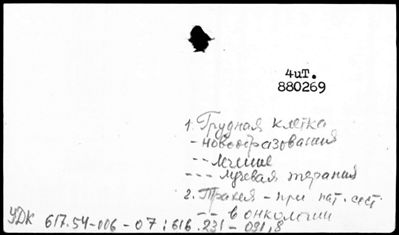 4иТ.
880269
1. Грудная клетка
- новообразования
-- лечение
--- лучевая терапия
2. Трахея - при пат. сост.
-- в онкологии
УДК 617.54-006-07:616.231-091,8